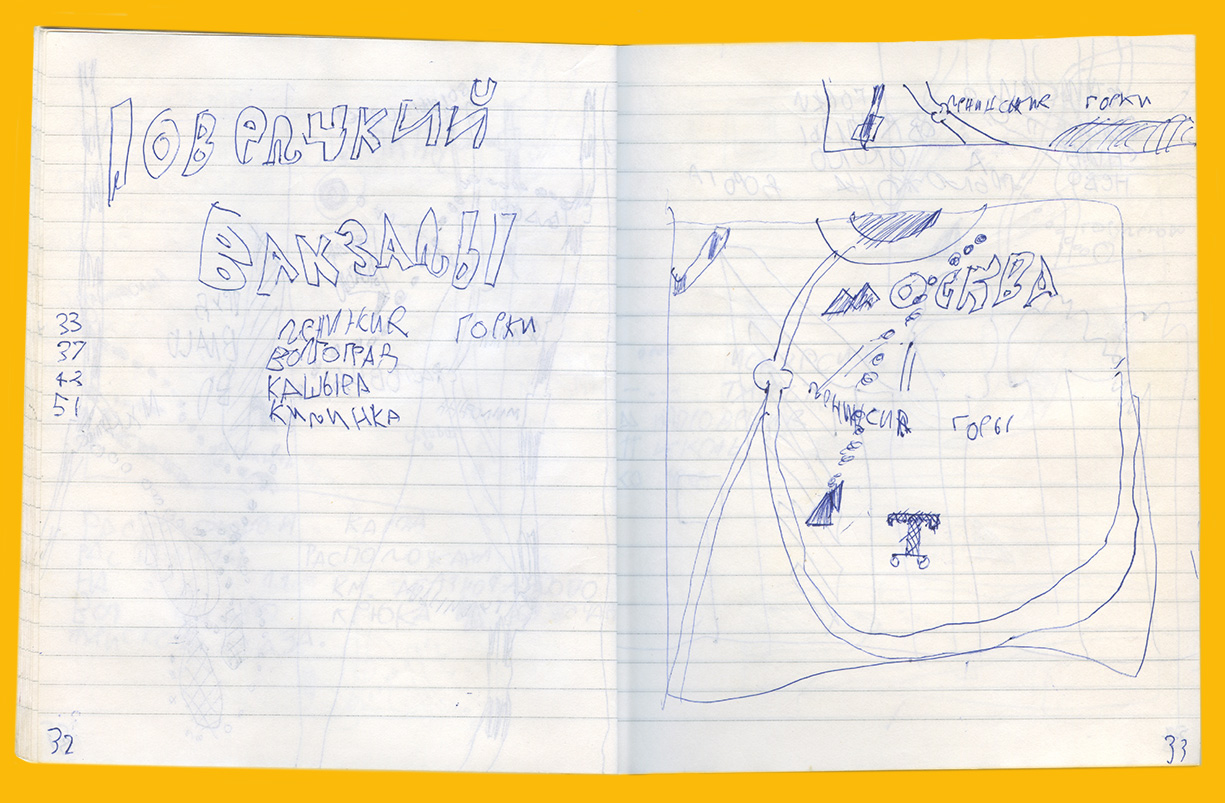 ПОВЕЛЦКИЙ
ВАКЗАЛЫ
33 ЛЕНИНКИЕ ГОРКИ
37 ВОЛГОГРАД
42 КАШЫРА
51
32
ЛЕНИНСКИЕ ГОРКИ
МОСКВА
ЛЕНИНСКИЕ ГОРЫ
Т
33